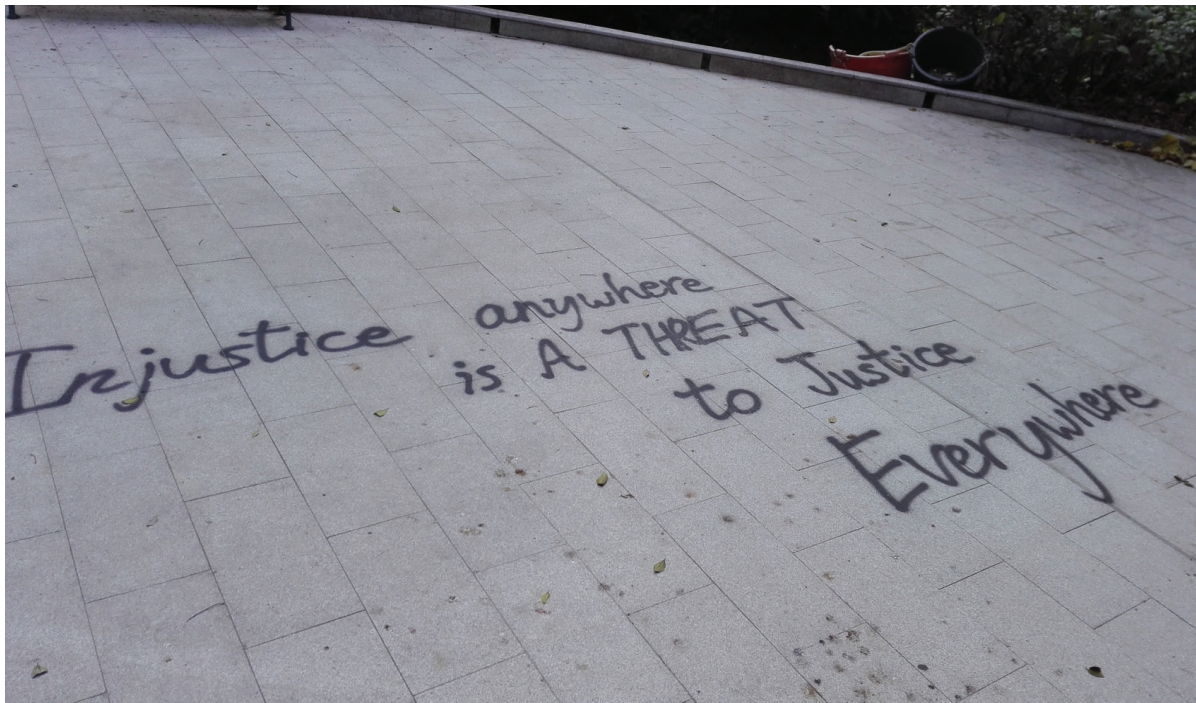 Injustice anywhere
is A THREAT
to Justice
Everywhere